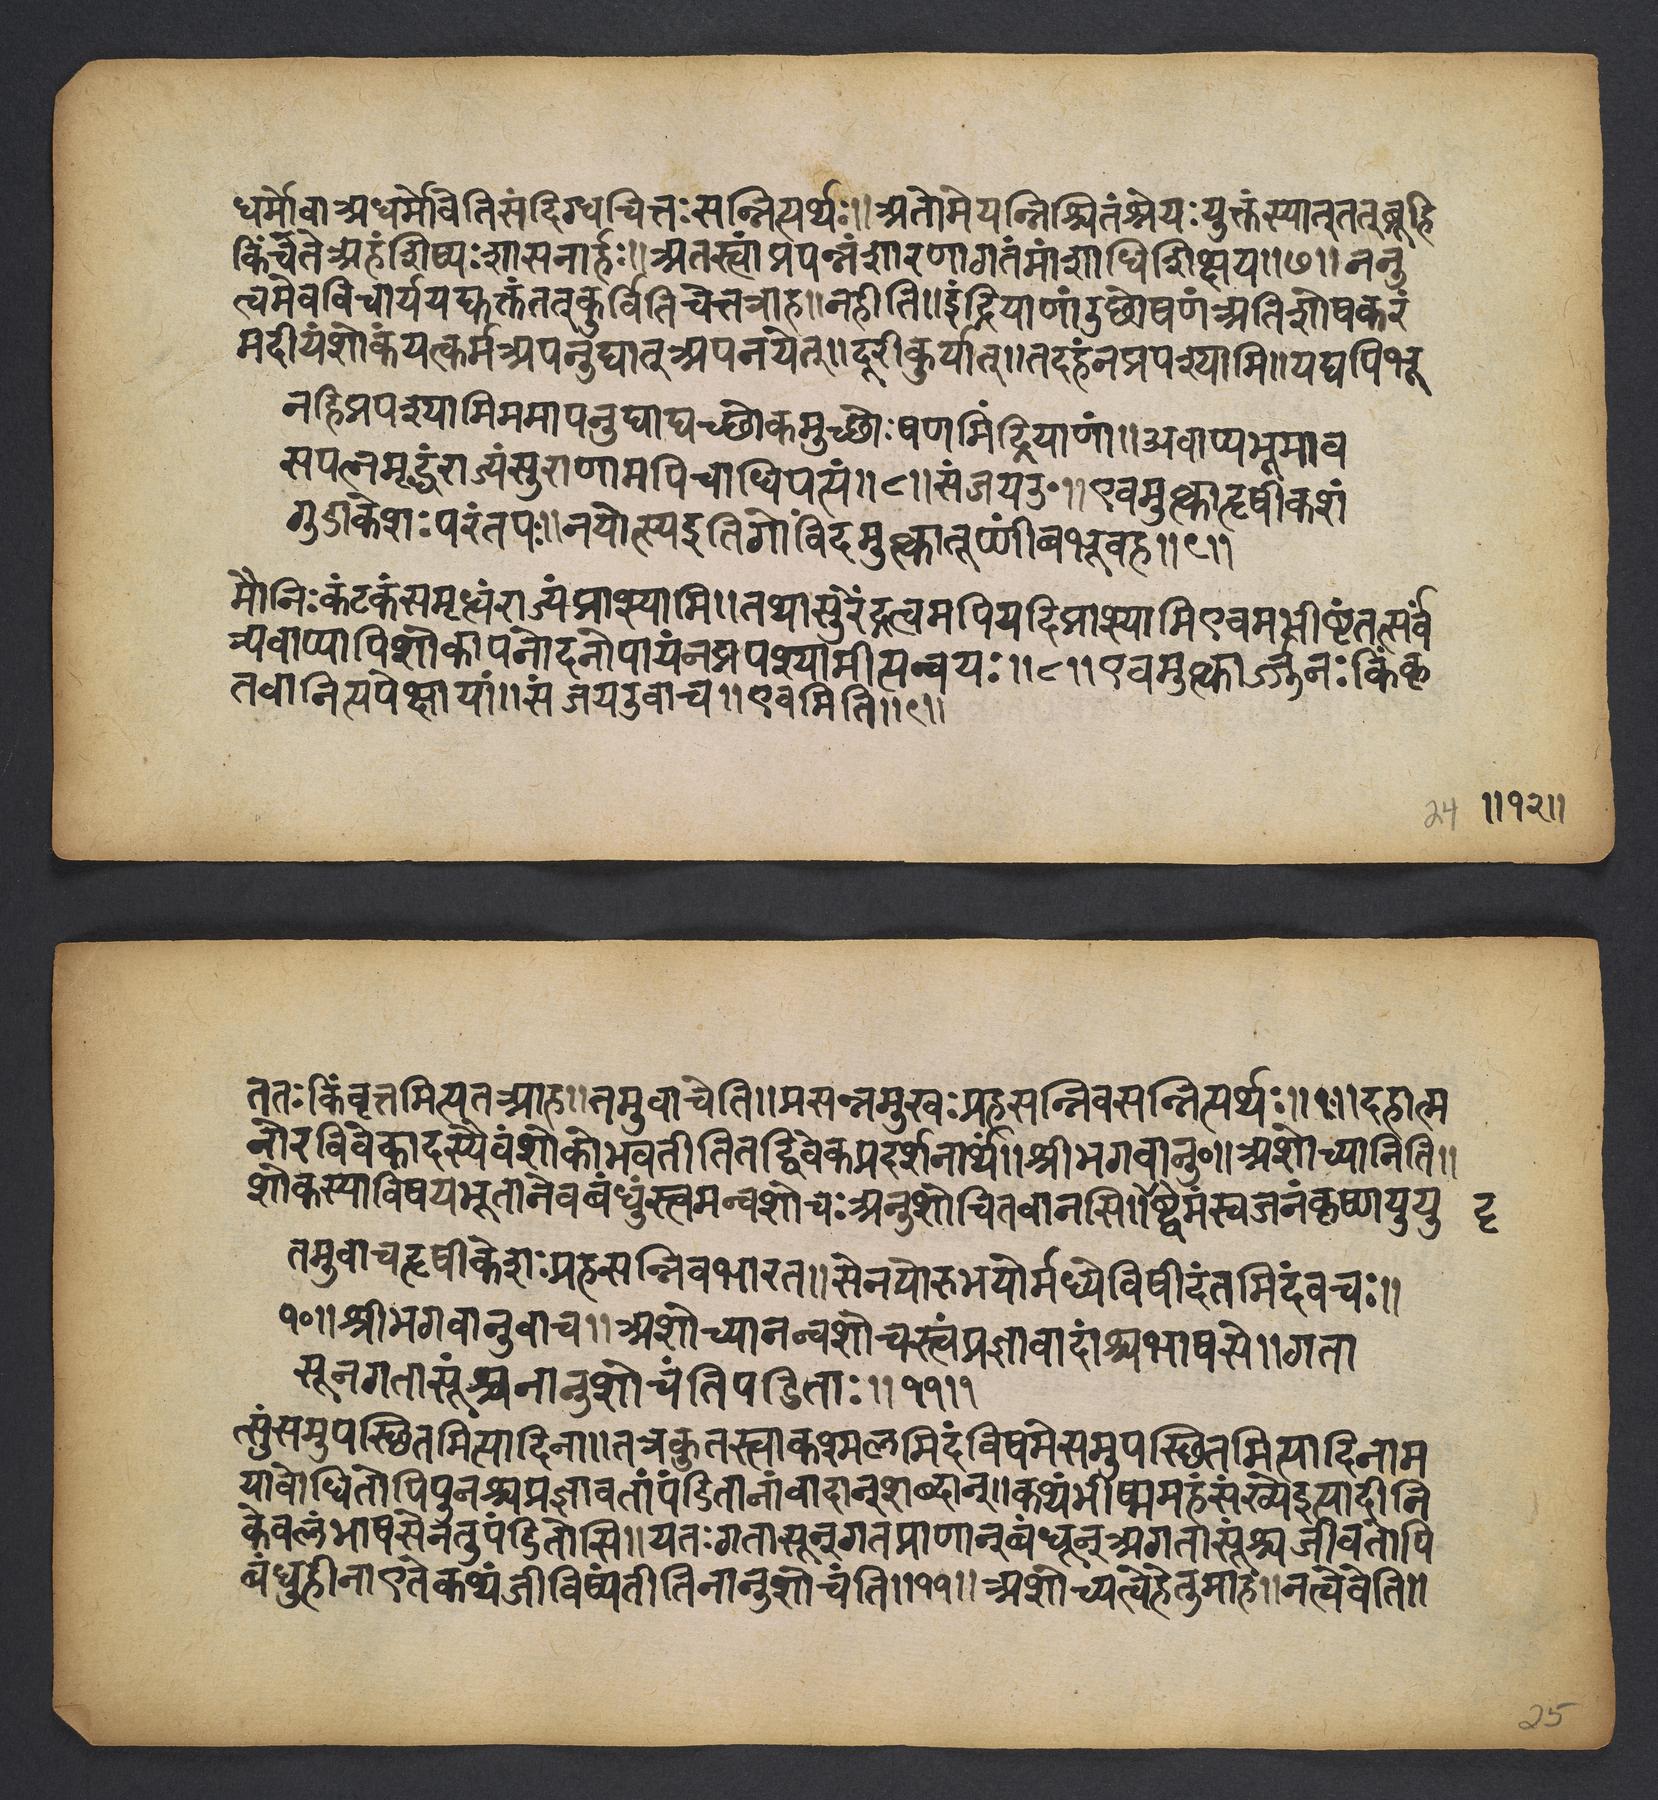 धर्मोवाअधर्मोवेतिसंदिग्धचित्तःसन्नित्यर्थः॥अतोमेयन्निश्चितंश्रेयःयुक्तंस्यात्ततब्रूहि
किंचतेअहंशिष्यःशासनार्हः॥अतस्त्वांप्रपन्नंशरणागतंमांशाधिशिक्षय॥७॥ननु
त्वमेवविचार्ययद्युक्तंतत्कुर्वितिचेत्तत्राह॥नहीति॥इंद्रियाणांउछोषणंअतिशोषकरं
मदीयंशोकंयत्कर्मअपनुद्यात्अपनयेत्॥दूरीकुर्यात्॥तदहंनप्रपश्यामि॥यद्यपिभू
नहिप्रपश्यामिममापनुद्याद्यच्छोकमुच्छोःषणमिंद्रियाणां॥अवाप्यभूमाव
सपत्नमृद्धंराज्यंसुराणामपिचाधिपत्यं॥८॥संजयउ॰॥एवमुत्काहृषीकेशं
गुडाकेशःपरंतपः॥नयोत्स्यइतिगोविंदमुत्कातूष्णींबभूवह॥९॥
मौनिःकंटकंसमृध्धंराज्यंप्राप्स्यामि॥तथासुरेंद्रत्वमपियदिप्राप्स्यामिएवमभीष्टंतत्सर्व
न्यवाप्यापिशोकापनोदनोपायंनप्रपश्यामीत्यन्वयः॥८॥एवमुत्कार्ज्जुनःकिंकृ
तवानित्यपेक्षायां॥संजयउवाच॥एवमिति॥९॥
24 ॥१२॥
ततःकिंवृत्तमित्यतआह॥तमुवाचेति॥प्रसन्नमुखःप्रहसन्निवसन्नित्यर्थः॥१०॥देहात्म
नोरविवेकादस्यैवंशोकोभवतीतितद्विवेकप्रदर्शनार्थं॥श्रीभगवानु०॥अशोच्यानिति॥
शोकस्याविषयभूतानेवबंधुंस्त्वमन्वशोचःअनुशोचितवानसि॥ष्ट्वेमंस्वजनंकृष्णयुयु दृ
तमुवाचहृषीकेशःप्रहसन्निवभारत॥सेनयोरुभयोर्मध्येविषीदंतमिदंवचः॥
१०॥श्रीभगवानुवाच॥अशोच्यानन्वशोचस्त्वंप्रज्ञावादांश्चभाषसे॥गता
सूनगतासूंश्चनानुशोचंतिपंडिताः॥११॥
त्सुंसमुपस्छितमित्यादिना॥तत्रकुतस्त्वाकश्मलमिदंविषमेसमुपस्छितमित्यादिनाम
याबोधितोपिपुनश्चप्रज्ञावतांपंडितानांवादान्शब्दान्॥कथंभीष्ममहंसंख्येइत्यादीनि
केवलंभाषसेनतुपंडितोसि॥यतःगतासून्गतप्राणान्बंधून्अगतासूंश्चजीवतोपि
बंधुहीनाएतेकथंजीविष्यंतीतिनानुशोचंति॥११॥अशोच्यत्वेहेतुमाह॥नत्वेवेति॥
25